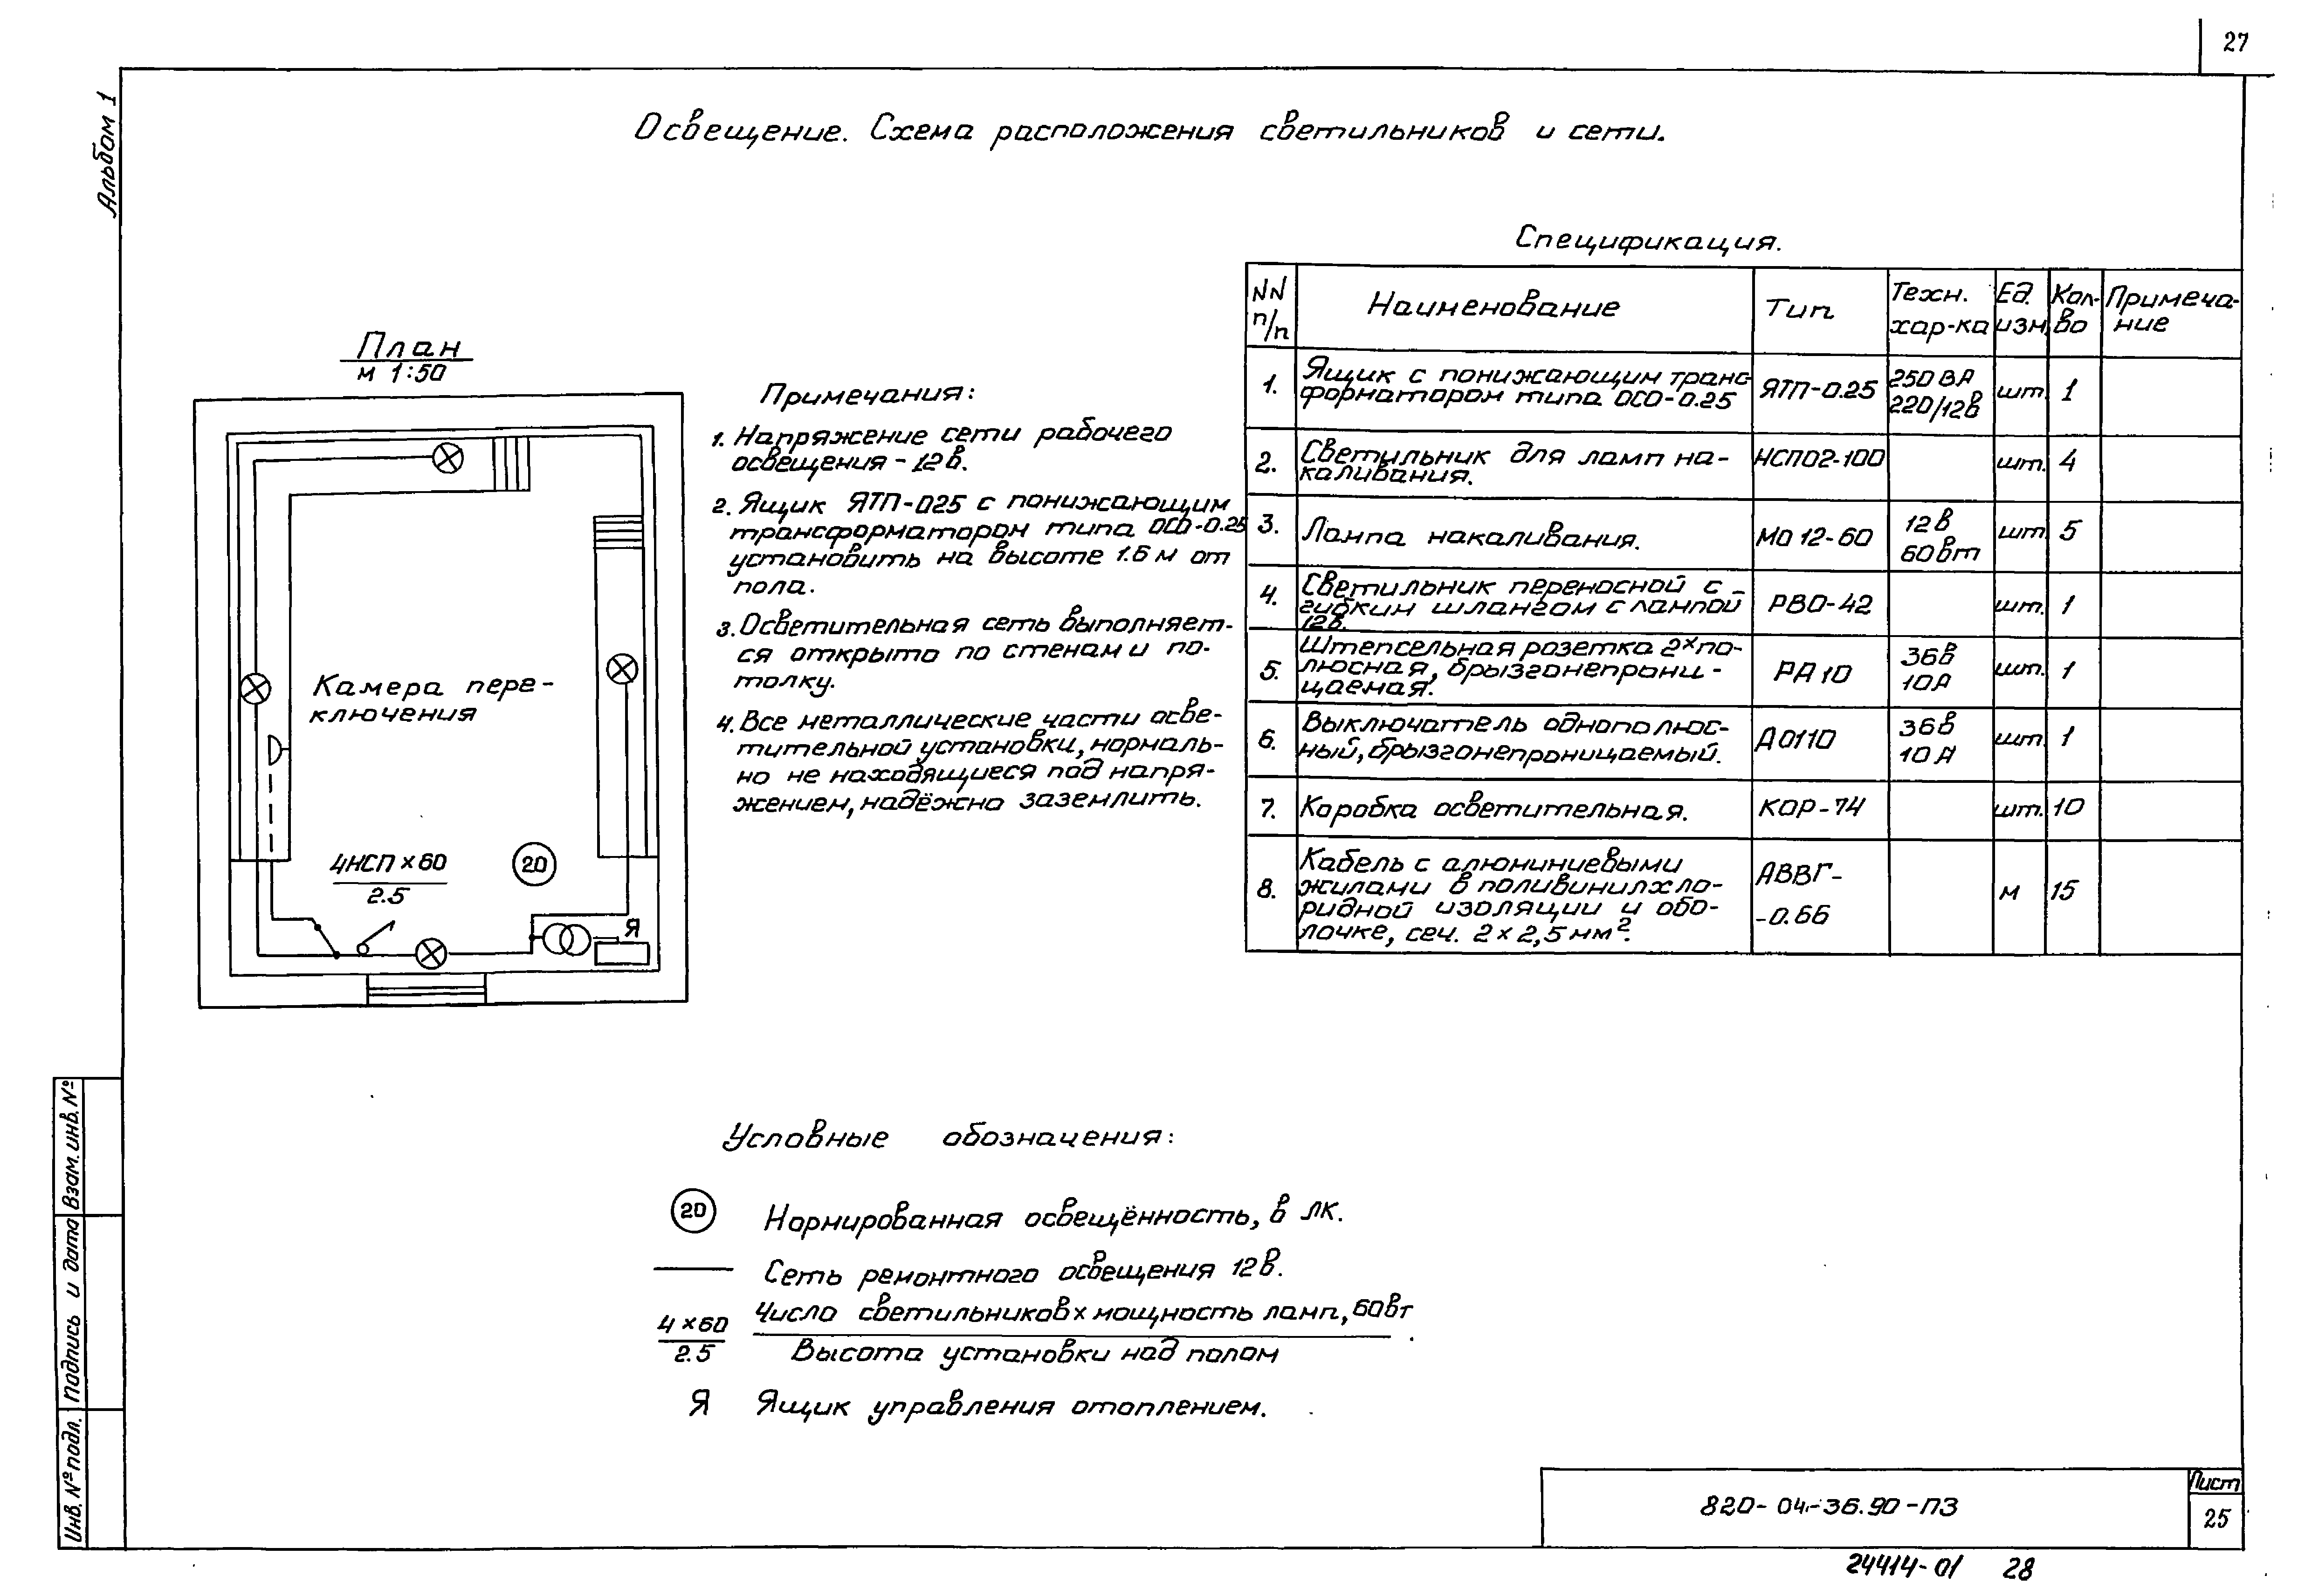 27
Альбом 1
Освещение. Схема расположения светильников и сети.
План
м 1:50
Камера пере-
ключения
4НСП х 60
2.5
20
Я
Примечания:
1. Напряжение сети рабочего
освещения - 12 в.
2. Ящик ЯТП-025 с понижающим
трансформатором типа ОСО-0.25
установить на высоте 1.6 м от
пола.
3. Осветительная сеть выполняет-
ся открыто по стенам и по-
толку.
4. Все металлические части осве-
тительной установки, нормаль-
но не находящиеся под напря-
жением, надёжно заземлить.
Спецификация.
NN п/п | Наименование | Тип | Техн. хар-ка | Ед. изм. | Кол-во | Примеча-ние
1. | Ящик с понижающим транс-
форматором типа ОСО-0.25 | ЯТП-0.25 | 250 ВА 220/12в | шт. | 1
2. | Светильник для ламп на-
каливания. | НСП02-100 | шт. | 4
3. | Лампа накаливания. | МО 12-60 | 12в 60вт | шт. | 5
4. | Светильник переносной с
гибким шлангом с лампой
12в. | РВО-42 | шт. | 1
5. | Штепсельная розетка 2хпо-
люсная, брызгонепрони-
цаемая. | РД 10 | 36в 10А | шт. | 1
6. | Выключатель однополюс-
ный, брызгонепроницаемый. | Д0110 | 36в 10А | шт. | 1
7. | Коробка осветительная. | КОР-74 | шт. | 10
8. | Кабель с алюминиевыми
жилами в поливинилхло-
ридной изоляции и обо-
лочке, сеч. 2 х 2,5 мм². | АВВГ-
-0.66 | м | 15
Условные обозначения:
20 Нормированная освещённость, в лк.
Сеть ремонтного освещения 12в.
4 х 60 Число светильников х мощность ламп, 60вт
2.5 Высота установки над полом
Я Ящик управления отоплением.
Взам. инв. №
Подпись и дата
Инв. № подл.
820-04-36.90-ПЗ
Лист
25
24414-01 28